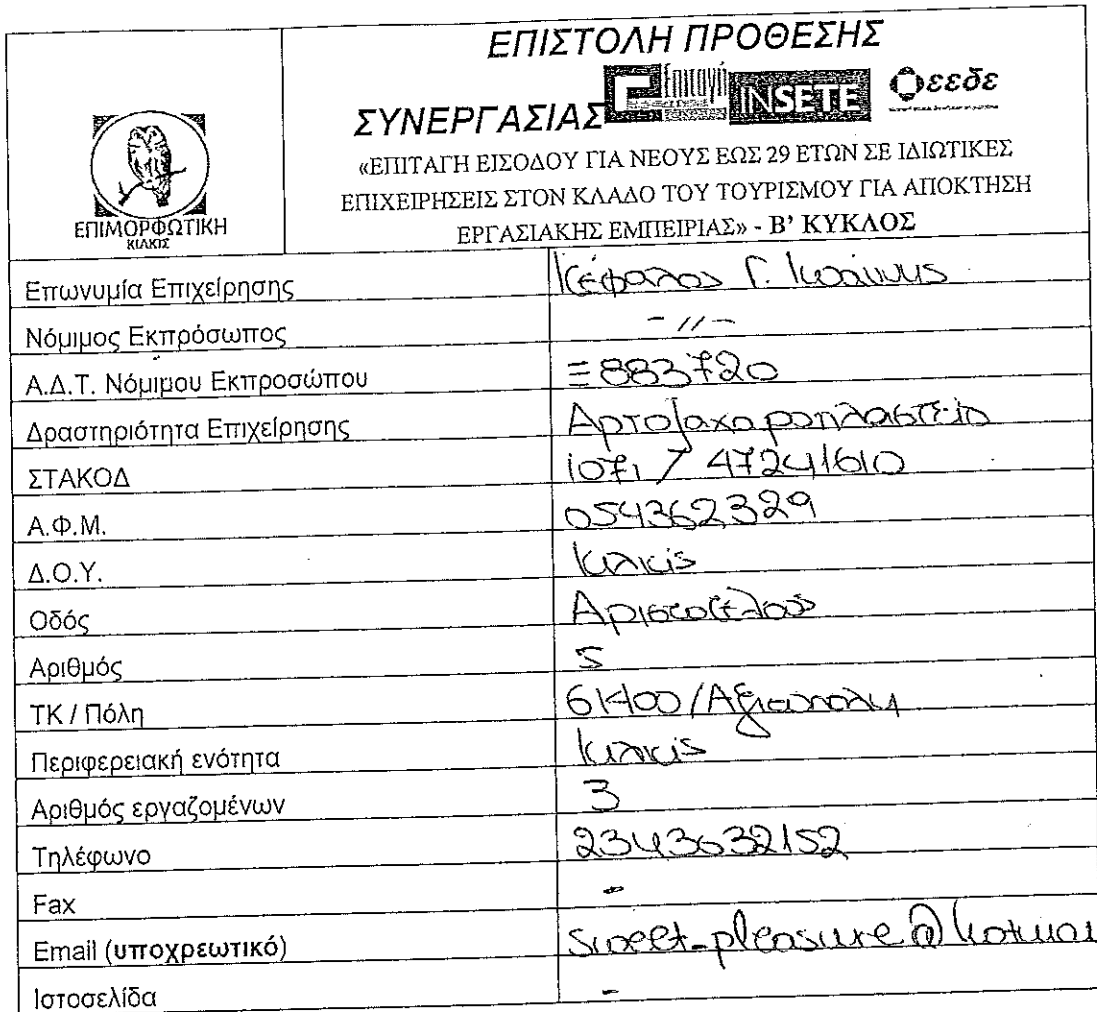 ΕΠΙΣΤΟΛΗ ΠΡΟΘΕΣΗΣ
ΣΥΝΕΡΓΑΣΙΑΣ INSETE εεδε
«ΕΠΙΤΑΓΗ ΕΙΣΟΔΟΥ ΓΙΑ ΝΕΟΥΣ ΕΩΣ 29 ΕΤΩΝ ΣΕ ΙΔΙΩΤΙΚΕΣ
ΕΠΙΧΕΙΡΗΣΕΙΣ ΣΤΟΝ ΚΛΑΔΟ ΤΟΥ ΤΟΥΡΙΣΜΟΥ ΓΙΑ ΑΠΟΚΤΗΣΗ
ΕΡΓΑΣΙΑΚΗΣ ΕΜΠΕΙΡΙΑΣ» - Β' ΚΥΚΛΟΣ
ΕΠΙΜΟΡΦΩΤΙΚΗ
ΚΙΛΚΙΣ
Επωνυμία Επιχείρησης Κέφαλος Γ. Ιωάννης
Νόμιμος Εκπρόσωπος -//-
Α.Δ.Τ. Νόμιμου Εκπροσώπου Ξ883720
Δραστηριότητα Επιχείρησης Αρτοζαχαροπλαστείο
ΣΤΑΚΟΔ 1071 / 47241610
Α.Φ.Μ. 054362329
Δ.Ο.Υ. Κιλκίς
Οδός Αριστοτέλους
Αριθμός 5
ΤΚ / Πόλη 61400/Αξιούπολη
Περιφερειακή ενότητα Κιλκίς
Αριθμός εργαζομένων 3
Τηλέφωνο 2343032152
Fax -
Email (υποχρεωτικό) sweet-pleasure@hotmai
Ιστοσελίδα -